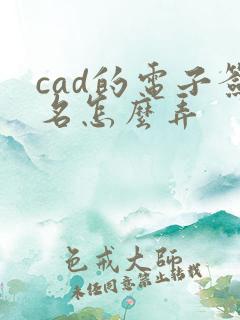 cad的电子签
名怎麽弄
色戒大师
未经同意禁止转载